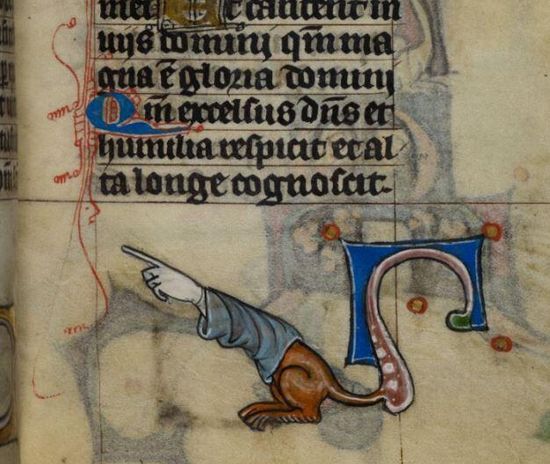 mei Et cantent in
uiis domini qm̄ ma
gna ē gloria domini
Qm̄ excelsus dn̄s et
humilia respicit et al
ta longe cognoscit.